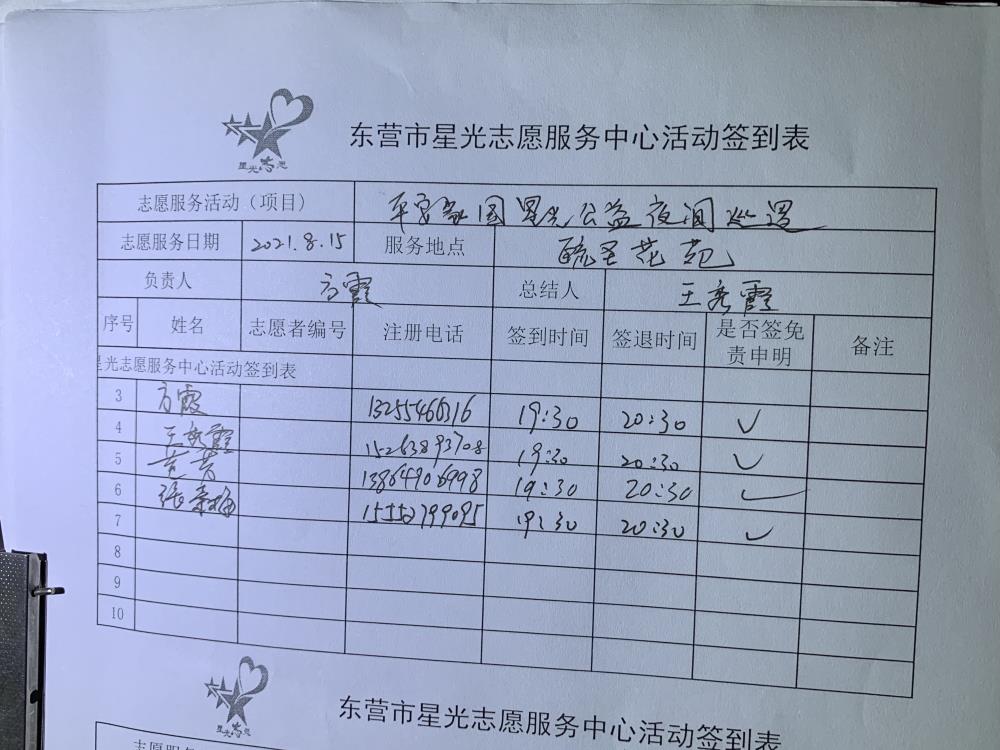 星光志愿
东营市星光志愿服务中心活动签到表
志愿服务活动（项目） 平安家园星光公益夜间巡逻
志愿服务日期 2021.8.15 服务地点 毓圣花苑
负责人 方霞 总结人 王秀霞
序号 姓名 志愿者编号 注册电话 签到时间 签退时间 是否签免责申明 备注
星光志愿服务中心活动签到表
3 方霞 13255466316 19:30 20:30 ✓
4 王秀霞 15263893708 19:30 20:30 ✓
5 范芳 13864906998 19:30 20:30 ✓
6 张 15552799095 19:30 20:30 ✓
7
8
9
10
星光志愿
东营市星光志愿服务中心活动签到表
志愿服务